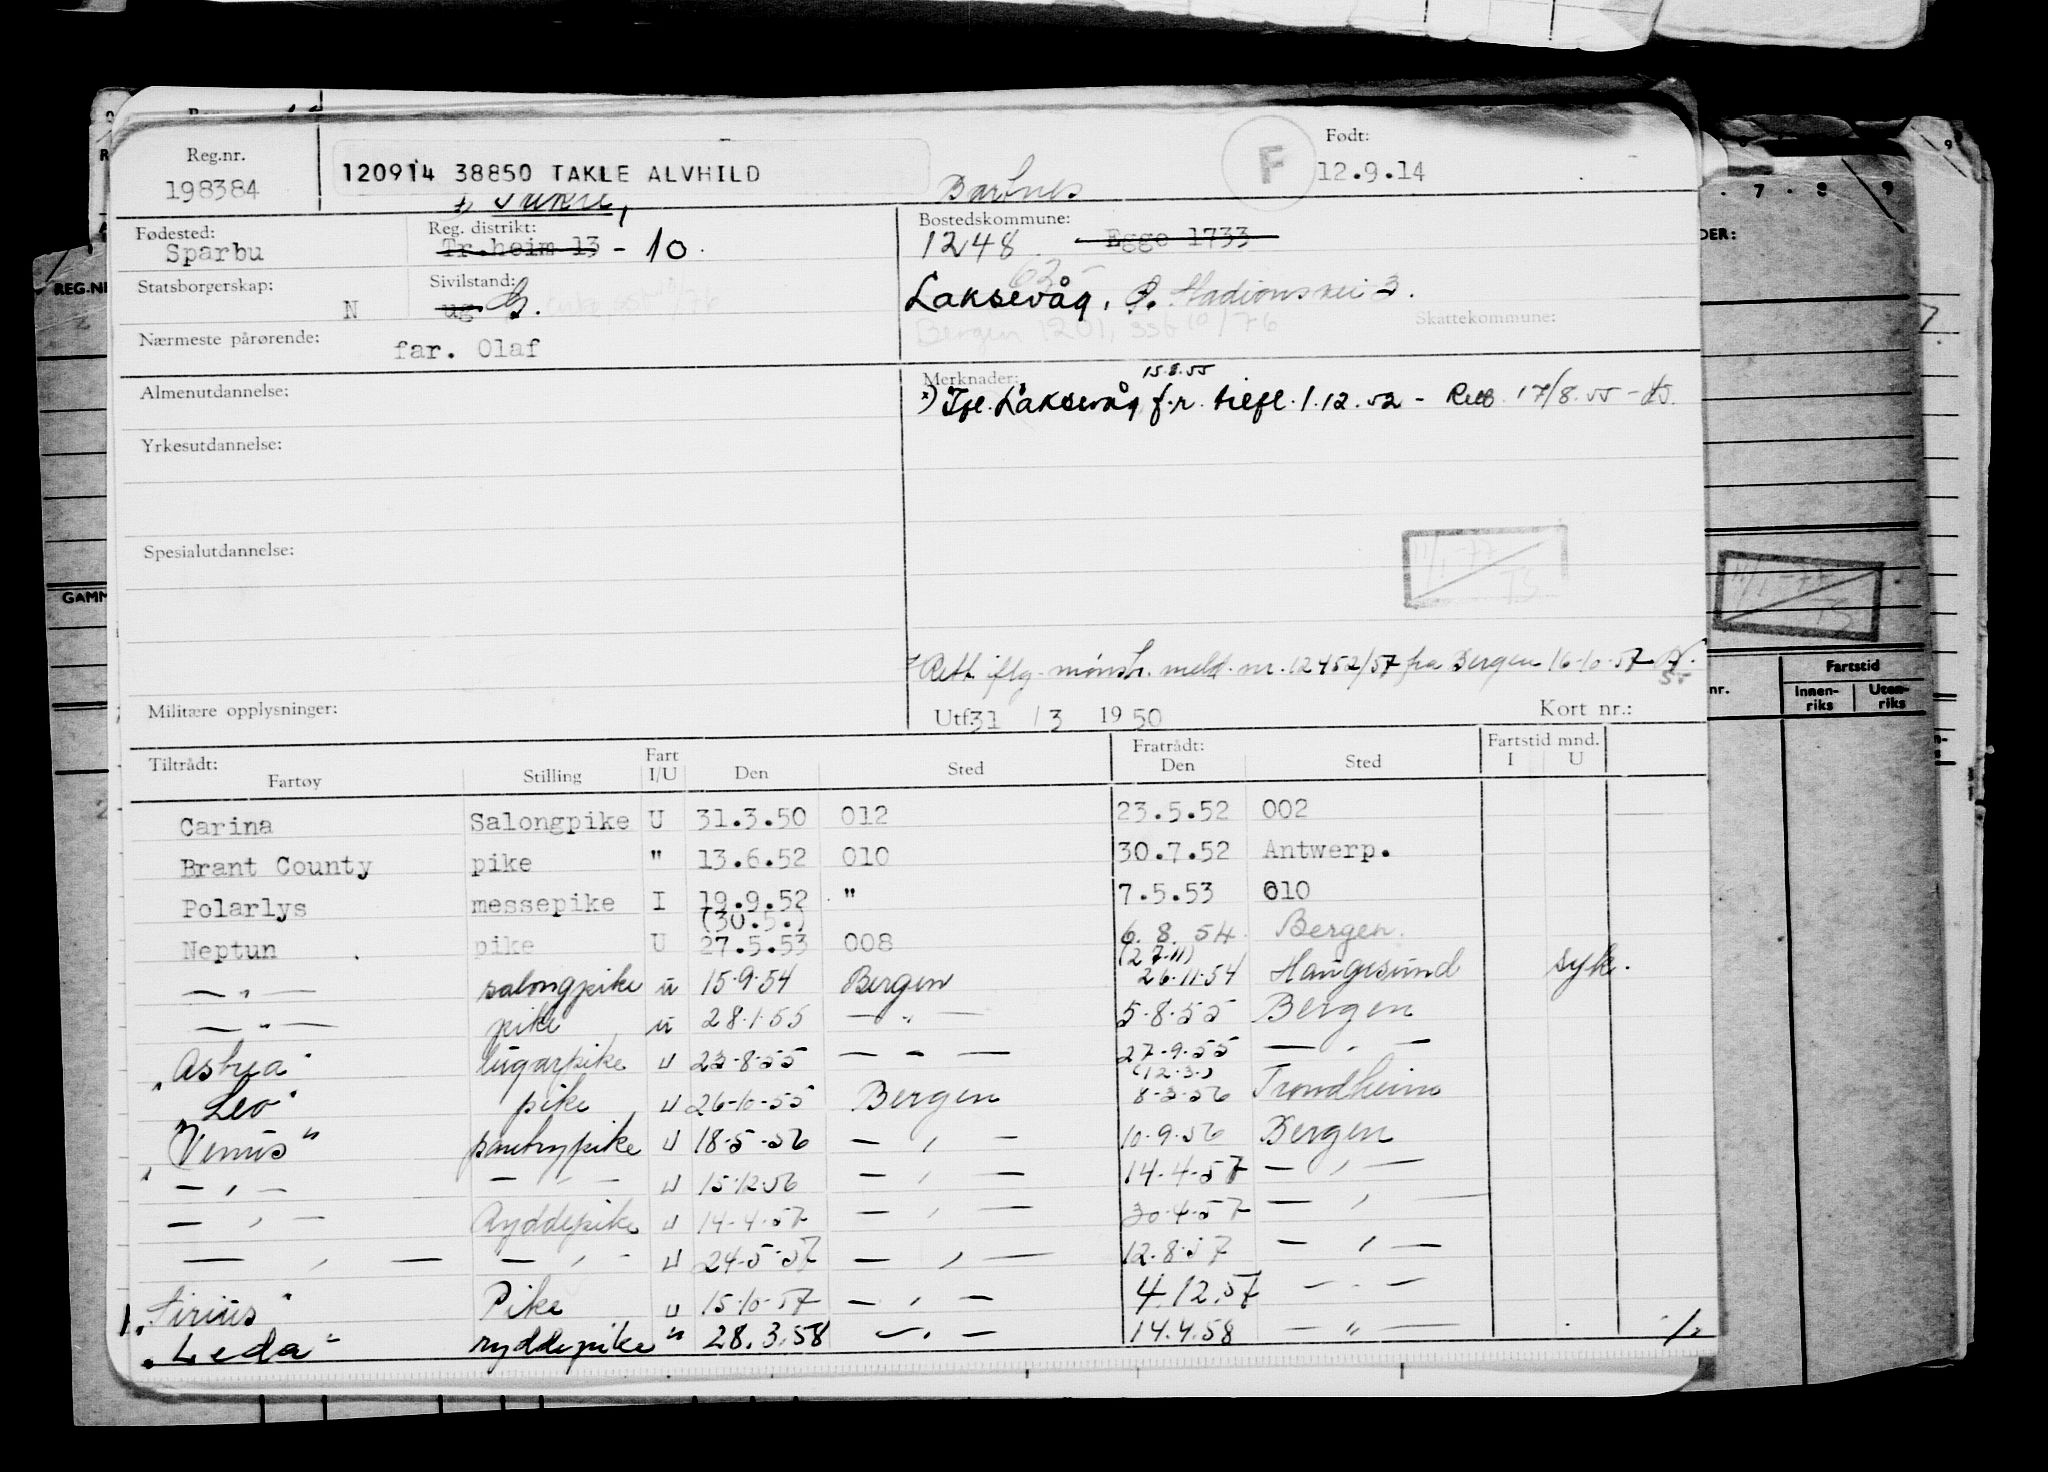 Reg.nr.
198384
120914 38850 TAKLE ALVHILD
F
Født:
12.9.14
Fødested:
Sparbu
Reg. distrikt:
Tr.heim 13 - 10.
Bostedskommune:
1248 Egge 1733
Laksevåg. Stadionsvei 3.
Bergen 1201, ssb 10/76
Skattekommune:
Statsborgerskap:
N
Sivilstand:
ug G. enke, ssb 10/76
Nærmeste pårørende:
far. Olaf
Almenutdannelse:
Merknader:
15.8.55
x) Tfl. Laksevåg f.r. tilfl. 1.12.52 - Rett. 17/8.55
Yrkesutdannelse:
Spesialutdannelse:
11/1-77
TS
Rett iflg. mønstr. meld. nr. 12452/57 fra Bergen 16-10-57
Militære opplysninger:
Utf 31 / 3 1950
Kort nr.:
Tiltrådt:
Fartøy Stilling Fart I/U Den Sted Fratrådt: Den Sted Fartstid mnd. I U
Carina Salongpike U 31.3.50 012 23.5.52 002
Brant County pike " 13.6.52 010 30.7.52 Antwerp.
Polarlys messepike I 19.9.52 " 7.5.53 010
(30.5.)
Neptun pike U 27.5.53 008 6.8.54 Bergen.
(27.11)
— " — salongpike u 15.9.54 Bergen 26.11.54 Haugesund syk.
— " — pike u 28.1.55 — " — 5.8.55 Bergen
"Astrea" lugarpike u 23-8-55 — " — 27.9.55 — " —
(12.3.)
"Leo" pike u 26-10-55 Bergen 8-3-56 Trondheim
"Venus" pantrypike u 18-5-56 — " — 10.9.56 Bergen
— " — — " — u 15.12.56 — " — 14-4-57 — " —
— " — Ryddepike u 14-4-57 — " — 30-4-57 — " —
— " — — " — u 24-5-57 — " — 12.8.57 — " —
"Sirius" Pike u 15-10-57 — " — 4.12.57 — " —
"Leda" ryddepike " 28.3.58 — " — 14.4.58 — " —
REG.NR
GAMM
7 . 8 . 9
DER:
11/1-77
TS
Fartstid
nr.
Innen-
riks
Uten-
riks